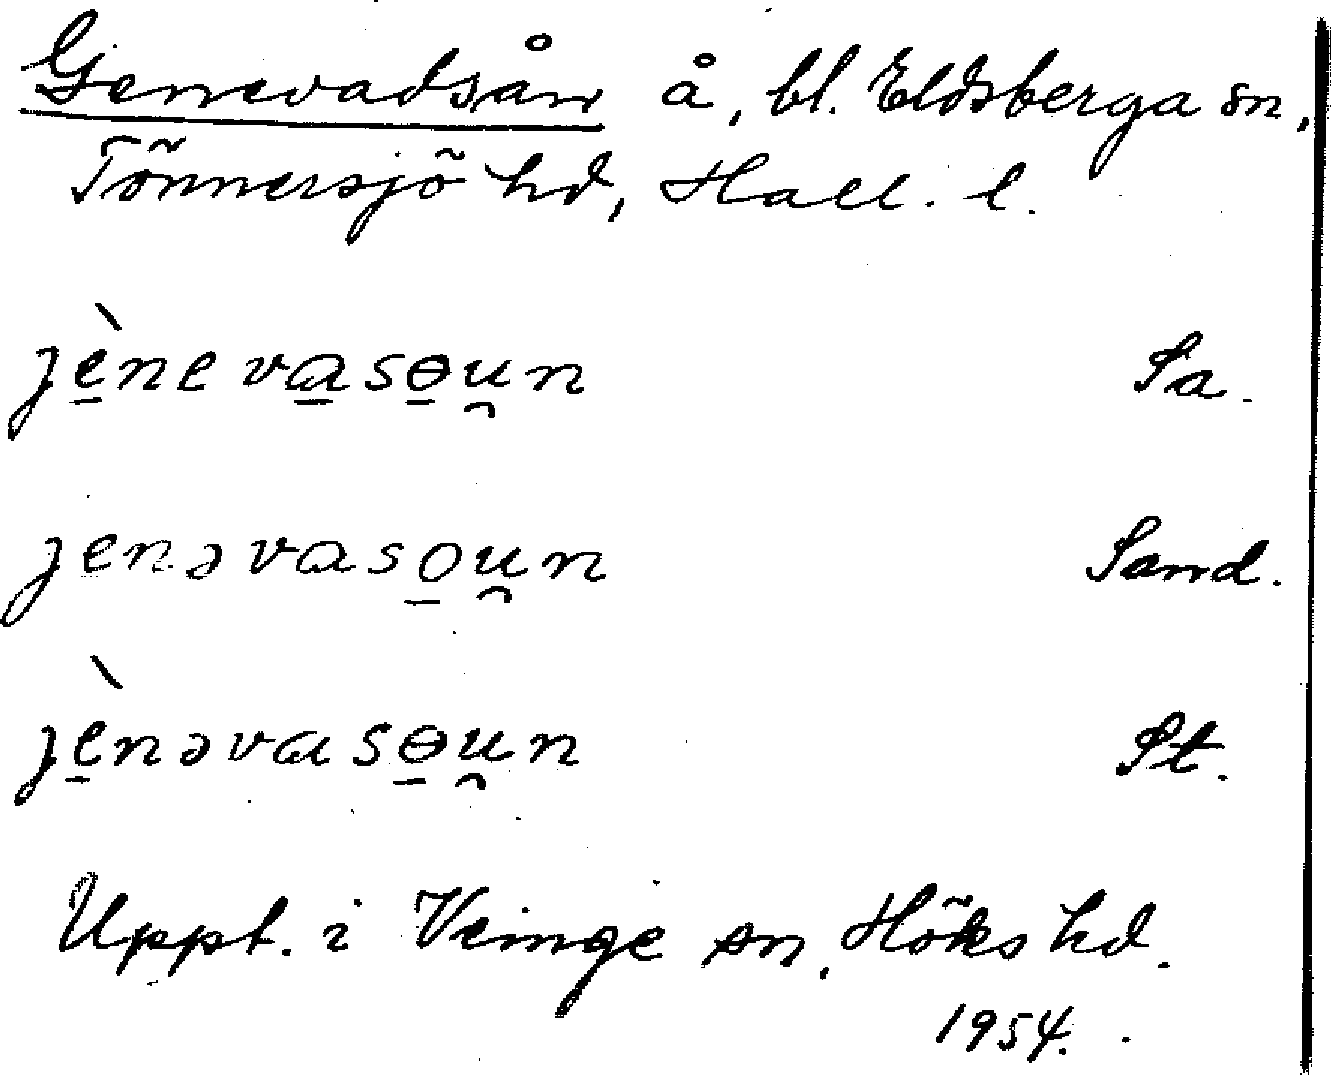 Genevadsån å, bl. Eldsberga sn,
Tönnersjö hd, Hall. l.
jè̱neva̱sɵ̱u̯n Sa.
jenəvaso̱u̯n Sand.
jè̱nəvasɵ̱u̯n St.
Uppt. i Veinge sn, Höks hd.
1954.